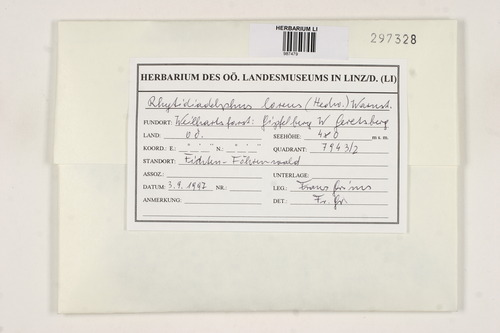 HERBARIUM LI
987473
297328
HERBARIUM DES OÖ. LANDESMUSEUMS IN LINZ/D. (LI)
Rhytidiadelphus loreus (Hedw.) Warnst.
FUNDORT: Weilhartsforst: Gipfelberg W Geretsberg
LAND: OÖ. SEEHÖHE: 480 m s. m.
KOORD.: E.: ° ' " N.: ° ' " QUADRANT: 7943/2
STANDORT: Fichten-Föhrenwald
ASSOZ.: UNTERLAGE:
DATUM: 3.9.1997 NR.: LEG.: Franz Grims
ANMERKUNG: DET.: Fr. Gr.